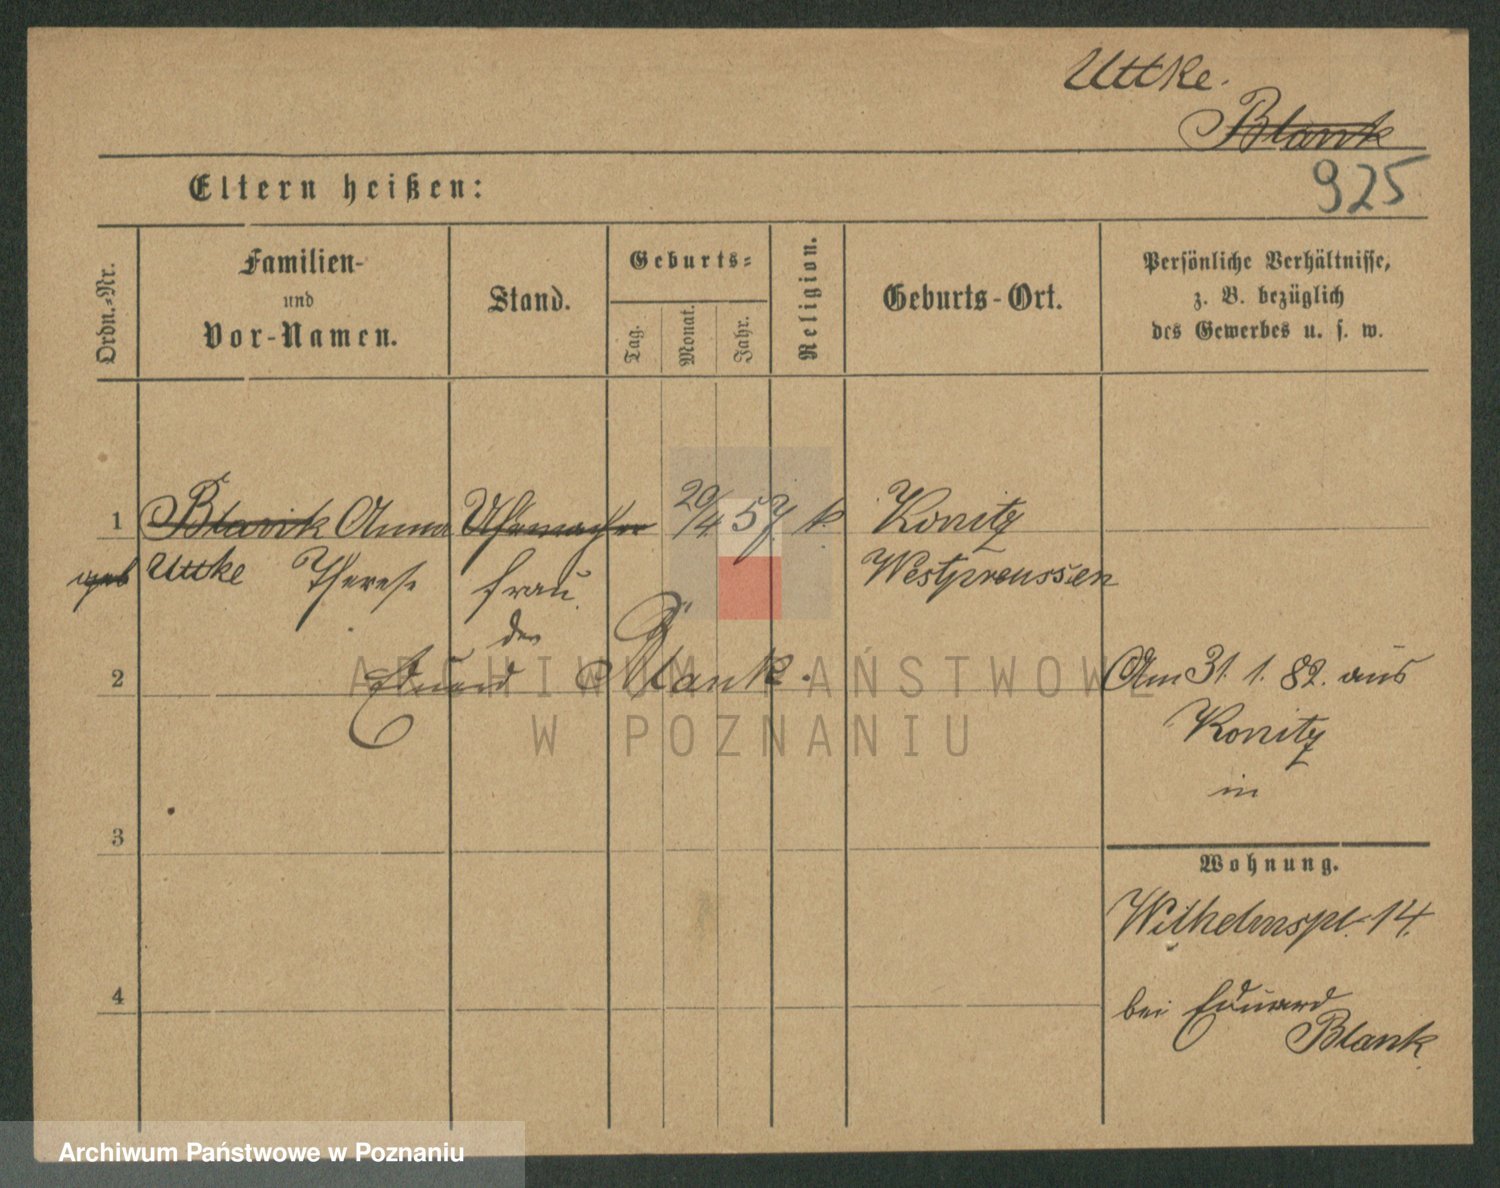 Uttke.
Blank
925
Eltern heißen:
Ordn.-Nr.
Familien-
und
Vor-Namen.
Stand.
Geburts-
Tag.
Monat.
Jahr.
Religion.
Geburts-Ort.
Persönliche Verhältnisse,
z. B. bezüglich
des Gewerbes u. s. w.
1 Blank Anna Uhrmacher 20/4 57 k Konitz
geb Uttke Therese Frau Westpreussen
des
2 Eduard Blank. Am 31. 1. 82. aus
Konitz
in
3
Wohnung.
Wilhelmspl. 14.
4
bei Eduard
Blank
ARCHIWUM PAŃSTWOWE
W POZNANIU
Archiwum Państwowe w Poznaniu